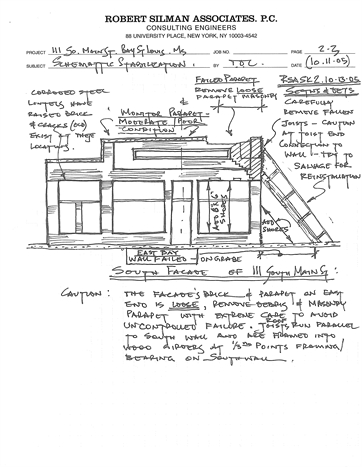 ROBERT SILMAN ASSOCIATES. P.C.
CONSULTING ENGINEERS
88 UNIVERSITY PLACE, NEW YORK, NY 10003-4542
PROJECT 111 SO. MAIN ST. BAY ST LOUIS, MS JOB NO. PAGE 2-2
SUBJECT SCHEMATIC STABILIZATION. BY TDC. (10.11.05)
RSASK2, 10.13.05
CORRODED STEEL
LINTELS HAVE
RAISED BRICK
& CRACKS (OLD)
EXIST AT THESE
LOCATIONS.
MONITOR PARAPET-
MODERATE/POOR
CONDITION
FAILED PARAPET
REMOVE LOOSE
PARAPET MASONRY
CAREFULLY
REMOVE FALLEN
JOISTS - CAUTION
AT JOIST END
CONNECTION TO
WALL - TRY TO
SALVAGE FOR
REINSTALLATION
ADD 6X6
SHORES
ADD
SHORES
EAST BAY
WALL FAILED - ON GRADE
SOUTH FACADE OF 111 SOUTH MAIN ST:
CAUTION: THE FACADE'S BRICK & PARAPET ON EAST
END IS LOOSE, REMOVE DEBRIS & MASONRY
PARAPET WITH EXTREME CARE TO AVOID
UNCONTROLLED FAILURE. ROOF JOISTS RUN PARALLEL
TO SOUTH WALL AND ARE FRAMED INTO
WOOD GIRDERS AT 1/3RD POINTS FRAMING/
BEARING ON SOUTH WALL.